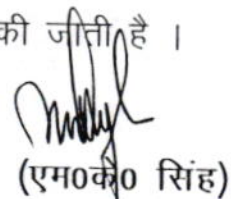 की जाती है ।
(एम0के0 सिंह)